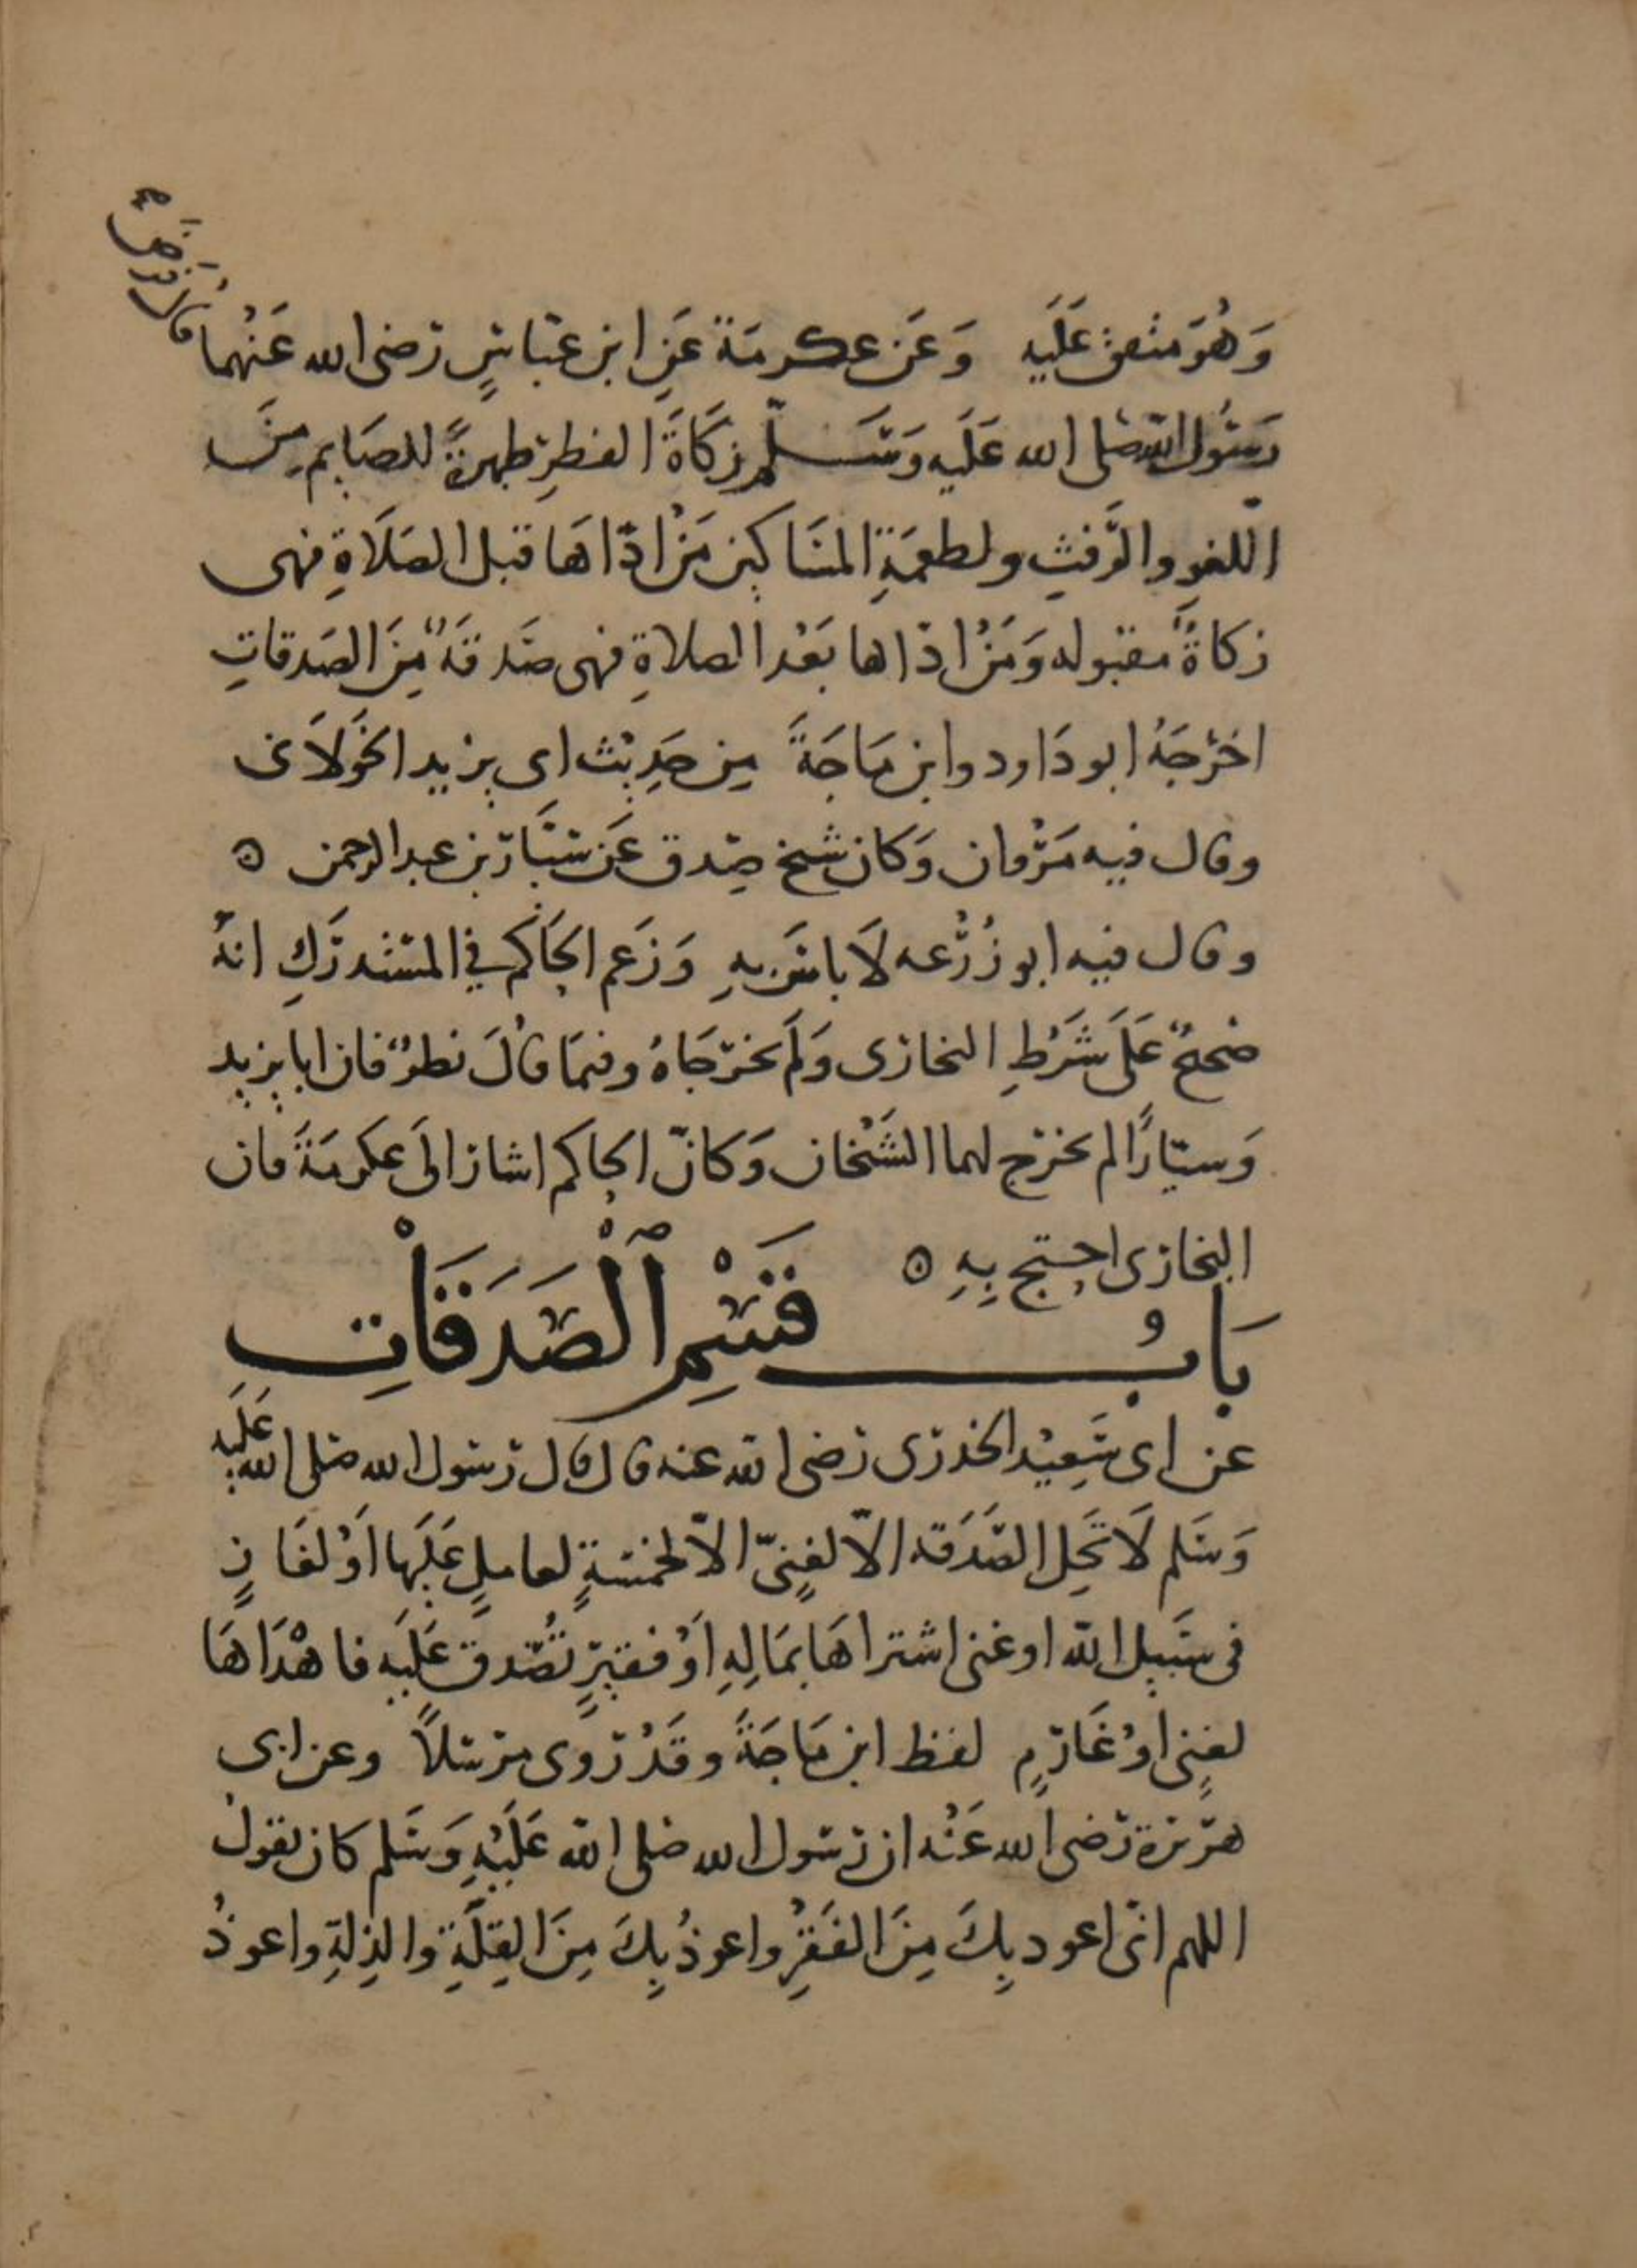 وَهُوَ متفق عَلَيه وَعَن عكرمَة عَنِ ابن عَبَّاسٍ رَضى الله عَنْهُما قال فرض
رَسُول الله صَلى الله عَلَيه وَسَلّم زكَاةَ الفطرِ طهرةً للصَايم مِنَ
اللغوِ والرَّفثِ ولطعمَةِ المسَاكين مَنْ ادّاهَا قبل الصَلَاةِ فهى
زكاةٌ مقبوله وَمَنْ ادّاها بَعْد الصلاةِ فهى صَدقَةٌ مِنَ الصَدقاتِ
اخرْجَهُ ابو دَاود وابن مَاجَةَ مِن حَدِيْث ابى يزيد الخَوْلَانى
وقال فيه مَرْوان وَكان شيخ صِدق عَن سَيَّار بن عبد الرحمن ه
وقال فيه ابو زُرْعه لَا باسَ بهِ وَزَعم الحَاكم في المسْتدرَكِ انهُ
صَحيحٌ عَلَى شَرْطِ البخارى وَلَم يخرّجَاهُ وفيمَا قالَ نظرٌ فان ابا يزيد
وَسيّارًا لم يخرّج لهما الشَيْخان وَكانّ الحاكم اشار الَى عكرمَةَ فان
البخارى احتج بِهِ ه
بَابُ قَسْمِ الْصَدَقَاتِ
عن ابى سَعِيْد الخدرى رَضى الله عنه قال قال رَسُول الله صَلى الله عَلَيه
وَسَلم لَا تَحِل الصَّدَقه الّا لغنِىّ الّا لخمسَةٍ لعاملٍ عَلَيها اوْ لغَازٍ
فى سَبيل الله او غنى اشتراهَا بمَالِهِ اَوْ فقيرٍ تُصُّدق عَلَيه فاهْدَاهَا
لغنِى اوْ غَارِمٍ لفظ ابن مَاجَةَ وقَدْ رُوى مرسَلًا وعن ابى
هرَيرة رَضى الله عَنْه ان رَسُول الله صَلى الله عَلَيْهِ وَسَلم كان يقول
اللهم انّى اعود بِكَ مِنَ الفَقْرِ واعوذُ بِكَ مِنَ القِلَّةِ والذِلةِ واعوذُ